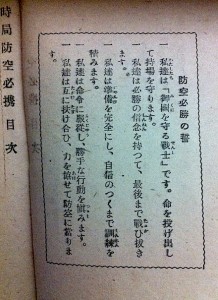 時局防空必携 目次
防空必勝の誓
一 私達は「御国を守る戦士」です。命を投げ出し
て持場を守ります。
一 私達は必勝の信念を持つて、最後まで戦ひ抜き
ます。
一 私達は準備を完全にし、自信のつくまで訓練を
積みます。
一 私達は命令に服従し、勝手な行動を慎みます。
一 私達は互に扶け合ひ、力を協せて防空に当りま